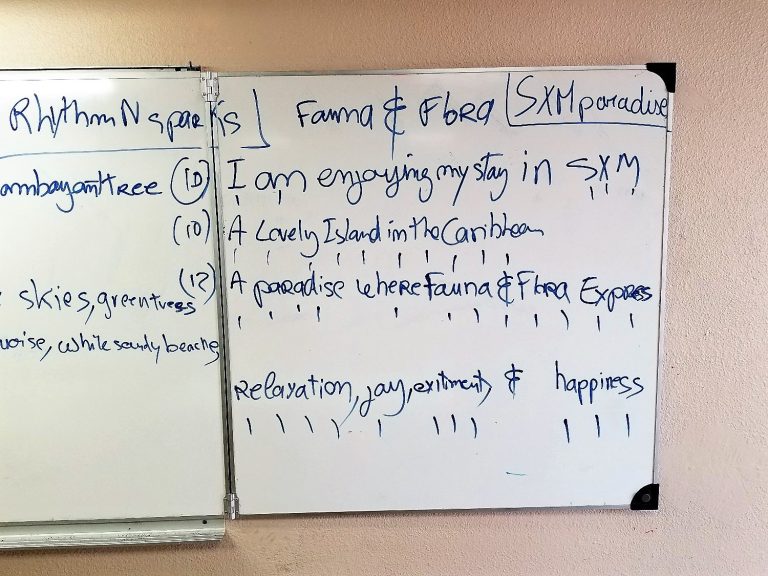 Rhythm N sparks
Fauna & Flora
SXM paradise
amboyant tree
(10) I am enjoying my stay in SXM
(10) A Lovely Island in the Caribbean
(12) A paradise where Fauna & Flora Express
skies, green trees
uoise, while sandy beaches
Relaxation, joy, exitiment, & happiness